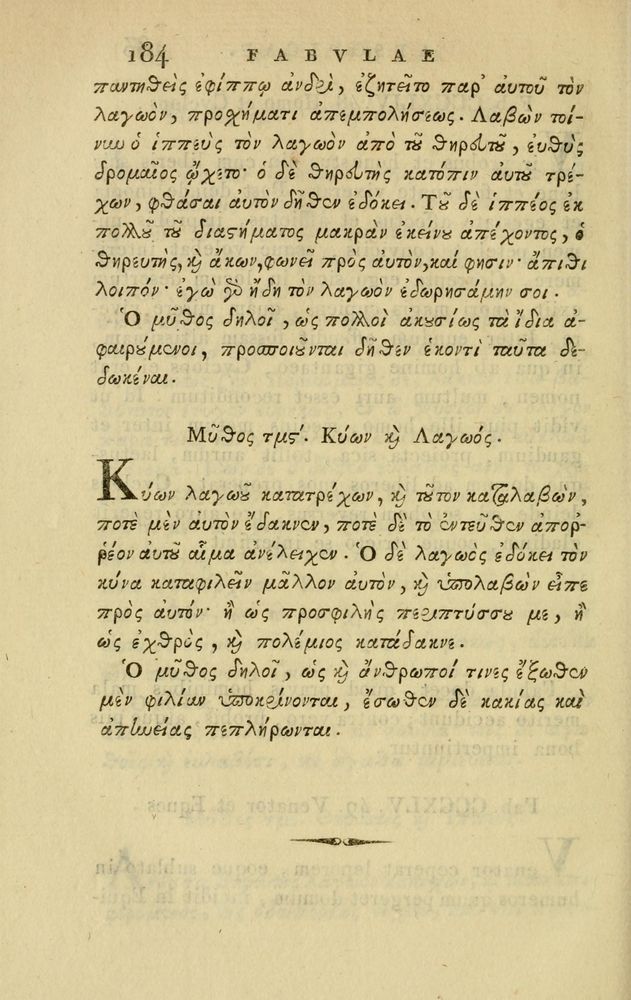 184 FABVLAE
παντηθεὶς ἐφίππῳ ἀνδρὶ, ἐζητεῖτο παρ' αὐτοῦ τὸν
λαγωὸν, προχήματι ἀπεμπολήσεως. Λαβὼν τοί-
νυν ὁ ἱππεὺς τὸν λαγωὸν ἀπὸ τοῦ θηρευτοῦ, ἐυθὺς
δρομαῖος ᾤχετο· ὁ δὲ θηρευτὴς κατόπιν αὐτοῦ τρέ-
χων, φθάσαι αὐτὸν δῆθεν ἐδόκει. Τοῦ δὲ ἱππέος ἐκ
πολλοῦ τοῦ διαστήματος μακρὰν ἐκείνου ἀπέχοντος, ὁ
θηρευτὴς, καὶ ἄκων, φωνεῖ πρὸς αὐτὸν, καί φησιν· ἄπιθι
λοιπόν· ἐγὼ γὰρ ἤδη τὸν λαγωὸν ἐδωρησάμην σοι.
Ὁ μῦθος δηλοῖ, ὡς πολλοὶ ἀκουσίως τὰ ἴδια ἀ-
φαιρούμενοι, προσποιοῦνται δῆθεν ἑκοντὶ ταῦτα δε-
δωκέναι.
Μῦθος τμϛ΄. Κύων καὶ Λαγωός.
Κύων λαγωοῦ κατατρέχων, καὶ τοῦτον καταλαβὼν,
ποτὲ μὲν αὐτὸν ἔδακνεν, ποτὲ δὲ τὸ ἐντεῦθεν ἀπορ-
ῥέον αὐτοῦ αἷμα ἀνέλειχεν. Ὁ δὲ λαγωὸς ἐδόκει τὸν
κύνα καταφιλεῖν μᾶλλον αὐτὸν, καὶ ὑπολαβὼν εἶπε
πρὸς αὐτόν· ἢ ὡς προσφιλὴς περιπτύσσου με, ἢ
ὡς ἐχθρὸς, καὶ πολέμιος κατάδακνε.
Ὁ μῦθος δηλοῖ, ὡς καὶ ἄνθρωποί τινες ἔξωθεν
μὲν φιλίαν ὑποκρίνονται, ἔσωθεν δὲ κακίας καὶ
ἀπηνείας πεπλήρωνται.